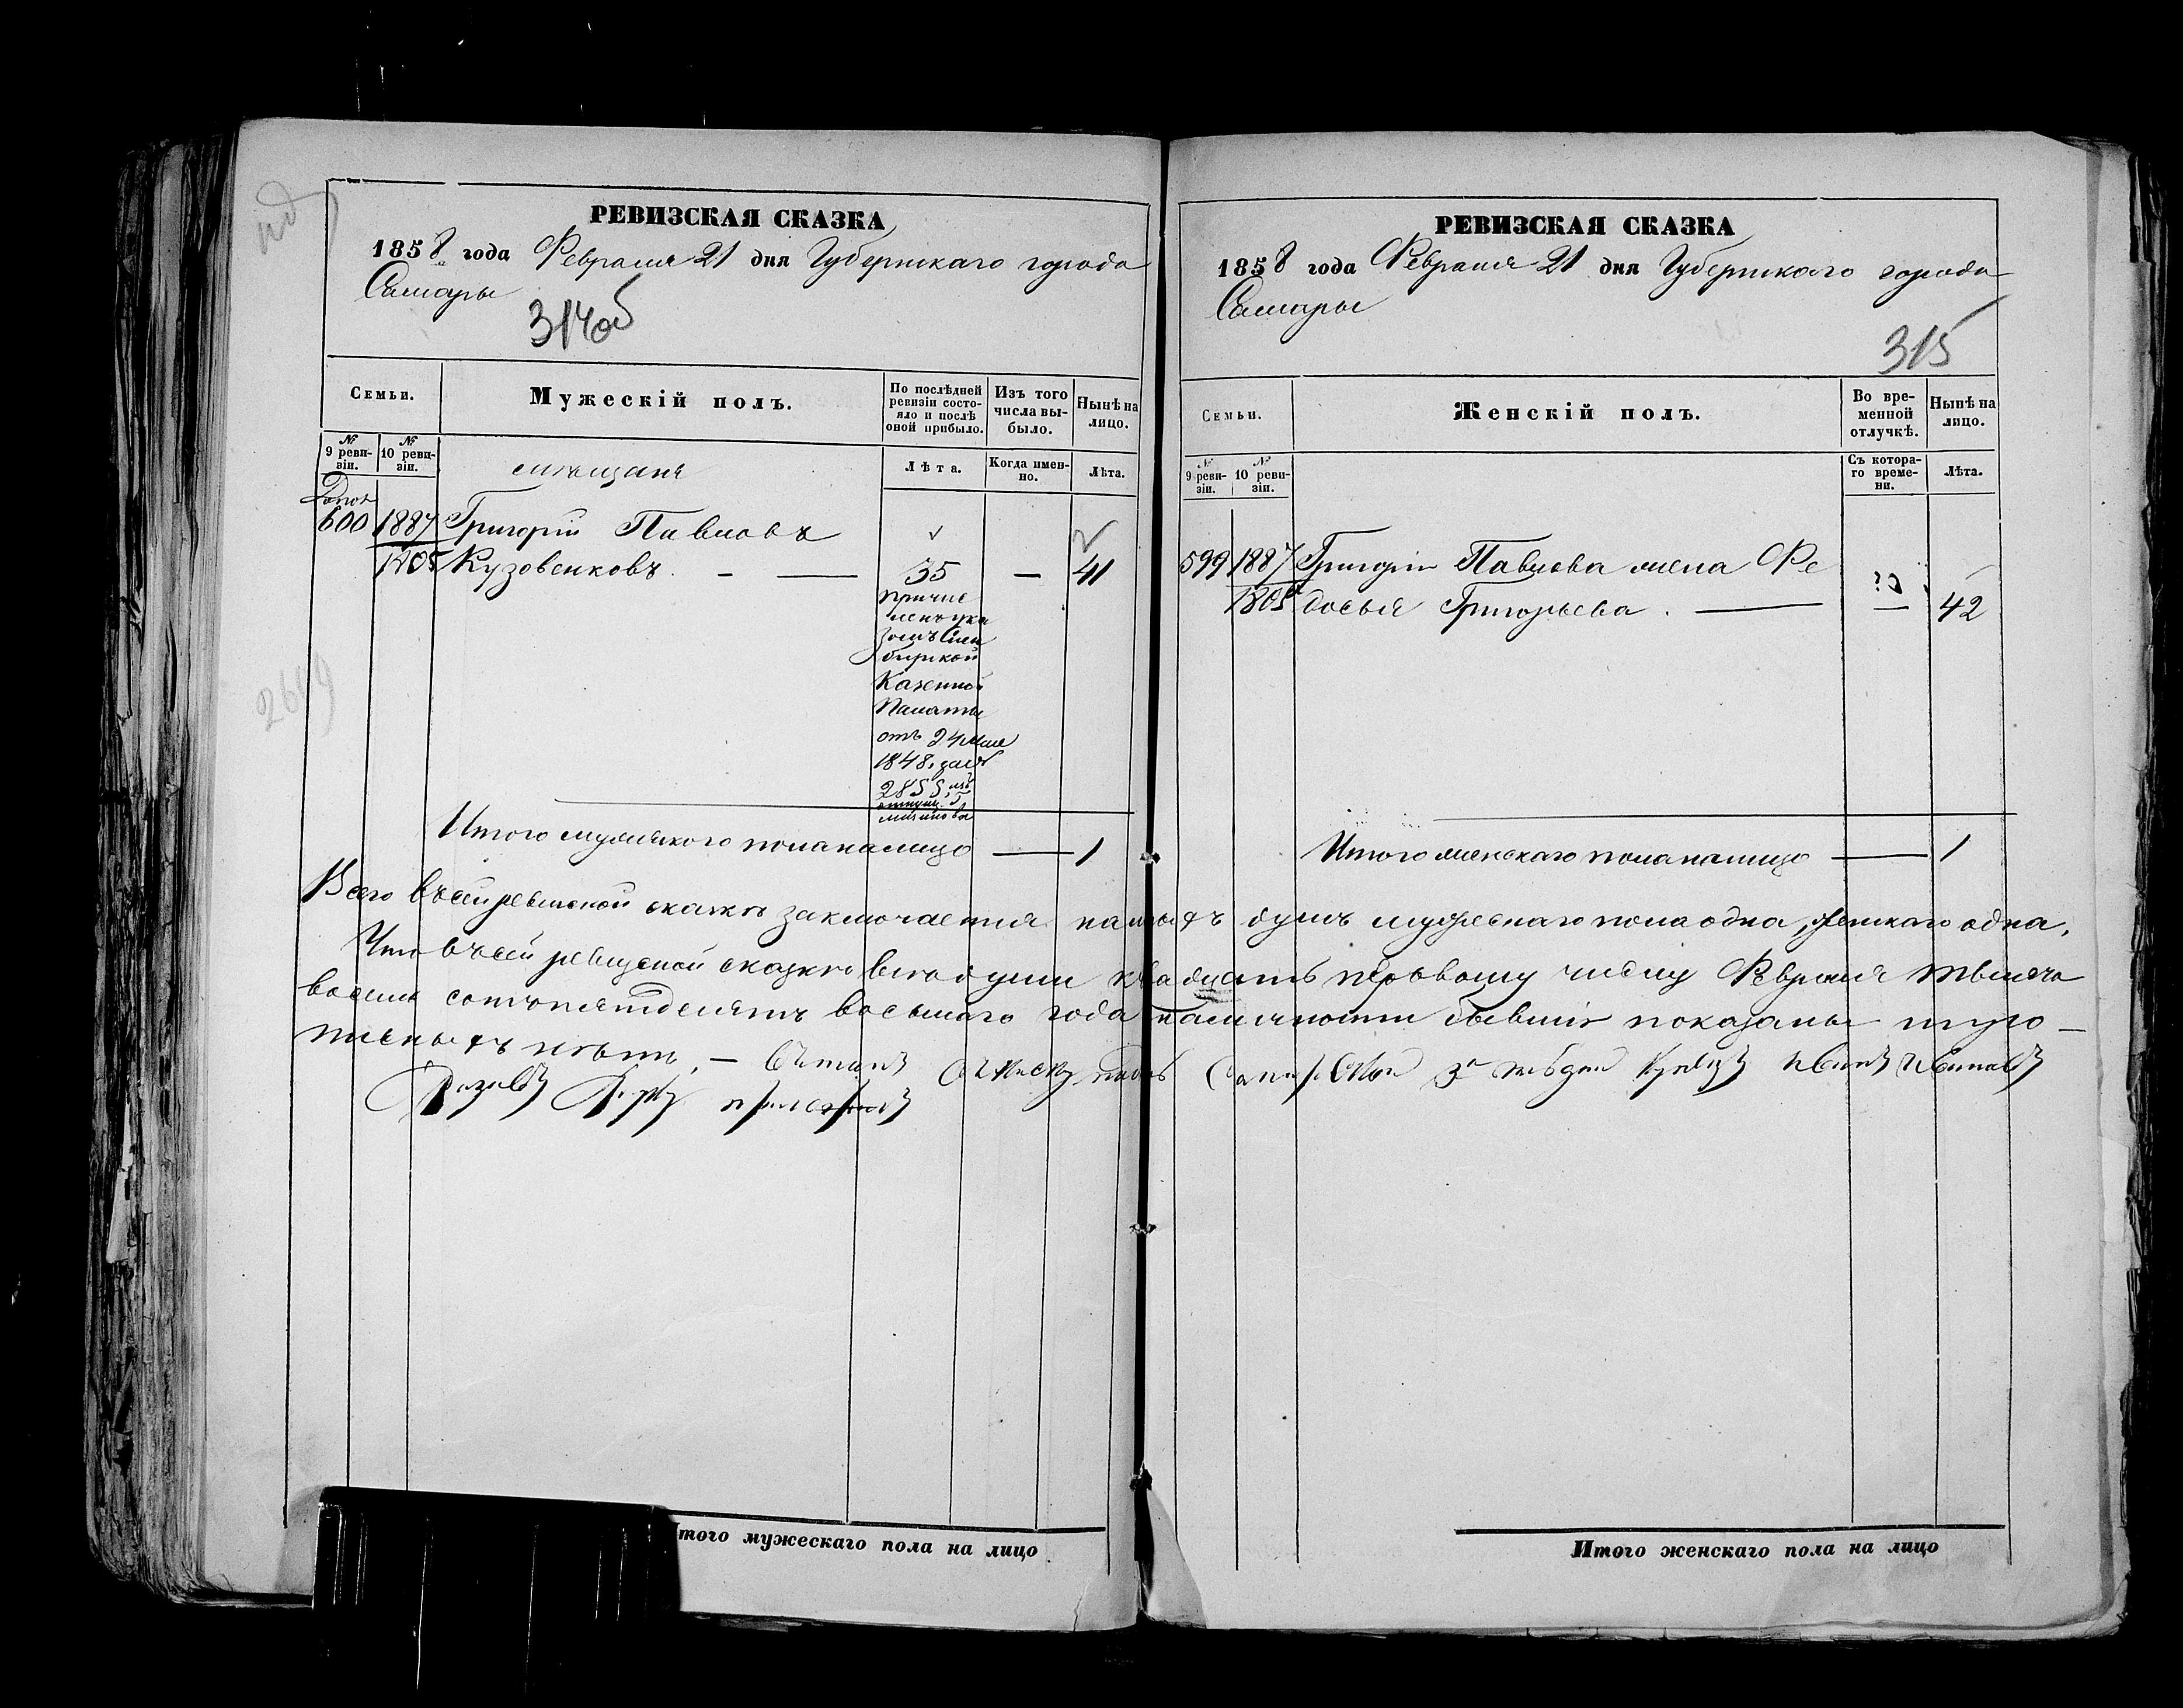 РЕВИЗСКАЯ СКАЗКА
1858 года Февраля 21 дня Губернскаго города
Самары
314об
Семьи.
Мужескій полъ.
По послѣдней ревизіи состо-
яло и послѣ
оной прибыло.
Изъ того
числа вы-
было.
Нынѣ на
лицо.
№
9 реви-
зіи.
№
10 реви-
зіи.
мѣщане
Лѣта.
Когда имен-
но.
Лѣта.
600 1887 Григорій Павловъ
Кузовенковъ. 35 — 41
причис
ленъ ука
зомъ Сим
бирской
Казенной
Палаты
отъ 24 Мая
1848. за №
2855
Итого мужескаго пола на лицо — 1
РЕВИЗСКАЯ СКАЗКА
1858 года Февраля 21 дня Губернскаго города
Самары
315
Семьи.
Женскій полъ.
Во вре-
менной
отлучкѣ.
Нынѣ на
лицо.
№
9 реви-
зіи.
№
10 реви-
зіи.
Съ котора-
го време-
ни.
Лѣта.
599 1887 Григорія Павлова жена Ѳе
досья Григорьева. — 42
Итого женскаго пола на лицо — 1
Всего въ сей ревизской сказкѣ заключается налицо душъ мужескаго пола одна, женскаго одна.
Что въ сей ревизской сказкѣ всѣ души къ двадцать первому числу Февраля тысяча
восемь сотъ пятьдесятъ восьмаго года въ наличности бывшія показаны и проп
исныхъ нѣтъ. —
Итого мужескаго пола на лицо
Итого женскаго пола на лицо